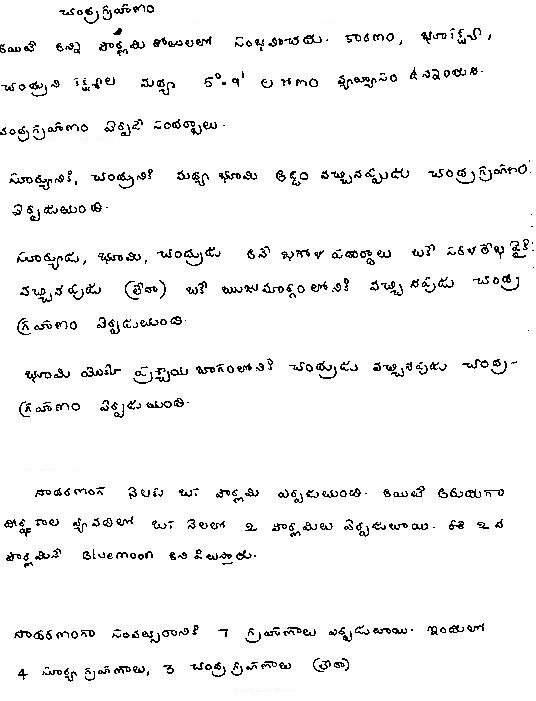 చంద్రగ్రహణం
అయితే అన్ని పౌర్ణమి రోజులలో సంభవించదు. కారణం, భూకక్ష్య,
చంద్రుని కక్ష్యల మధ్య 5°-9' ల కోణం వ్యత్యాసం ఉంటుంది.
చంద్రగ్రహణం ఏర్పడే సందర్భాలు.
సూర్యునికి, చంద్రునికి మధ్య భూమి అడ్డం వచ్చినప్పుడు చంద్రగ్రహణం
ఏర్పడుతుంది.
సూర్యుడు, భూమి, చంద్రుడు అనే ఖగోళ పదార్థాలు ఒకే సరళరేఖ పైకి
వచ్చినప్పుడు (లేదా) ఒకే ఋజుమార్గంలోనికి వచ్చినప్పుడు చంద్ర
గ్రహణం ఏర్పడుతుంది.
భూమి యొక్క ప్రచ్ఛాయ భాగంలోనికి చంద్రుడు వచ్చినప్పుడు చంద్ర-
గ్రహణం ఏర్పడుతుంది.
సాధారణంగా నెలకు ఒక పౌర్ణమి ఏర్పడుతుంది. అయితే అరుదుగా
దీర్ఘకాల వ్యవధిలో ఒక నెలలో 2 పౌర్ణమిలు ఏర్పడుతాయి. ఈ 2వ
పౌర్ణమినే Bluemoon అని పిలుస్తారు.
సాధారణంగా సంవత్సరానికి 7 గ్రహణాలు ఏర్పడుతాయి. ఇందులో
4 సూర్యగ్రహణాలు, 3 చంద్రగ్రహణాలు (లేదా)